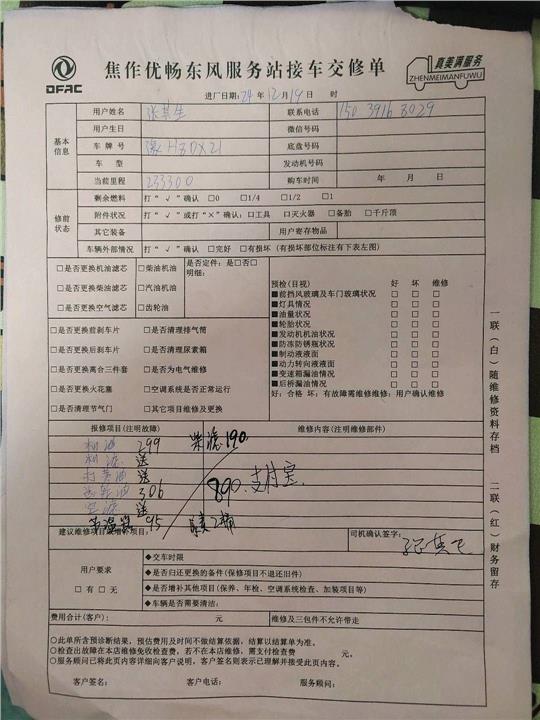 DFAC
焦作优畅东风服务站接车交修单
真美满服务
ZHENMEIMANFUWU
进厂日期:24年12月19日 时
基本信息
用户姓名 联系电话 150 3916 8029
用户生日 微信号码
车牌号 豫H3DX21 底盘号码
车型 发动机号码
当前里程 233300 购车时间 年 月 日
修前状态
剩余燃料 打“√”确认 □0 □1/4 □1/2 □1
附件状况 打“√”或打“×”确认:□工具 □灭火器 □备胎 □千斤顶
其它装备 用户寄存物品
车辆外部情况 打“√”确认 □完好 □有损坏 (有损坏部位标注有下表左图)
□是否更换机油滤芯 □柴油机油 是否定件:是□否□
明细:
□是否更换柴油滤芯 □汽油机油
□是否更换空气滤芯 □齿轮油
□是否更换前刹车片 □是否清理排气筒
□是否更换后刹车片 □是否清理尿素箱
□是否更换离合三件套 □是否为电气维修
□是否更换火花塞 □空调系统是否正常运行
□是否清理节气门 □其它项目维修及更换
预检(目视) 好 坏 维修
■前挡风玻璃及车门玻璃状况 □ □ □
■灯具情况 □ □ □
■油量状况 □ □ □
■轮胎状况 □ □ □
■发动机机油状况 □ □ □
■防冻防锈瓶状况 □ □ □
■制动液液面 □ □ □
■动力转向液液面 □ □ □
■变速箱漏油情况 □ □ □
■后桥漏油情况 □ □ □
好:合格 坏:有故障需维修维修:用户确认维修
报修项目(注明故障) 维修内容(注明维修部件)
机油 299 柴滤 190
机滤 送
送
306 890.支付宝
空滤 送
95 2桶
建议维修项目 项目: 司机确认签字:
用户要求
□有 □无
◆交车时限
◆是否归还更换的备件(保修项目不退还旧件)
◆是否增补其他项目(保养、年检、空调系统检查、加装项目等)
◆车辆是否需要清洁:
费用合计(客户): 元 维修及三包件不允许带走
○此单所含预诊断结果,预估费用及时间不做结算依据,结算以结算单为准。
○检查出故障在本店维修免收检查费,若不在本店维修,需支付检查费 元。
○服务顾问已将此页内容详细向客户说明,客户签名则表示已理解并接受此页内容。
客户签名: 客户电话: 服务顾问:
一联(白)随维修资料存档
二联(红)财务留存